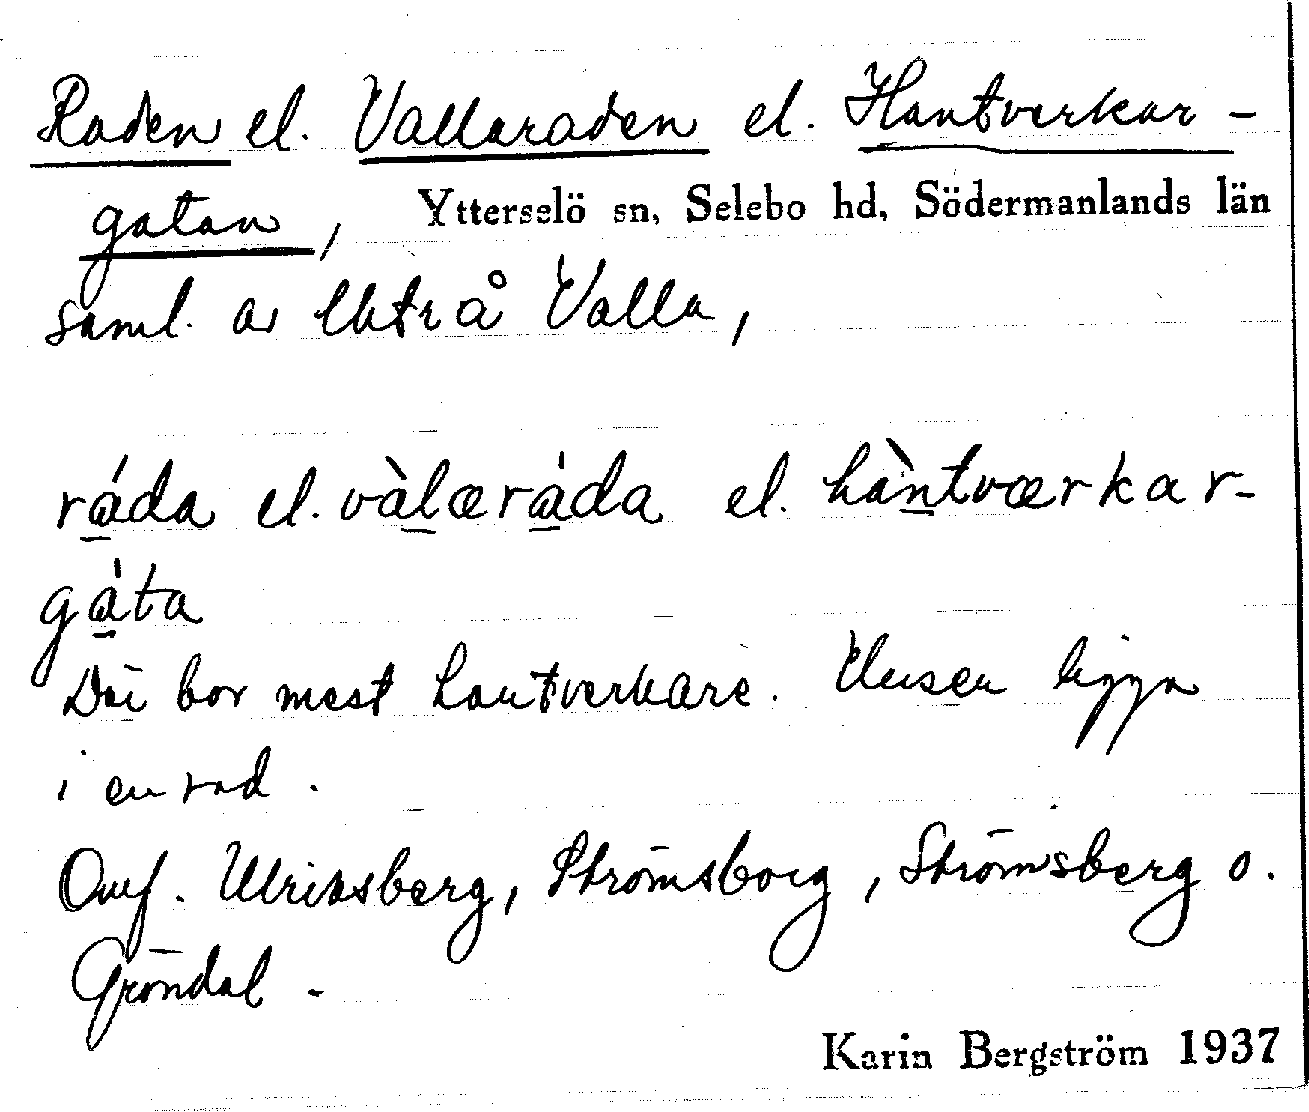 Raden el. Vallaraden el. Hantverkar-
gatan, Ytterselö sn, Selebo hd, Södermanlands län
saml. av lht r å Valla,
ráda el. vàlæráda el. hàntværkar-
gáta
Där bor mest hantverkare. Husen ligga
i en rad.
Omf. Ulriksberg, Strömsborg, Strömsberg o.
Gröndal.
Karin Bergström 1937